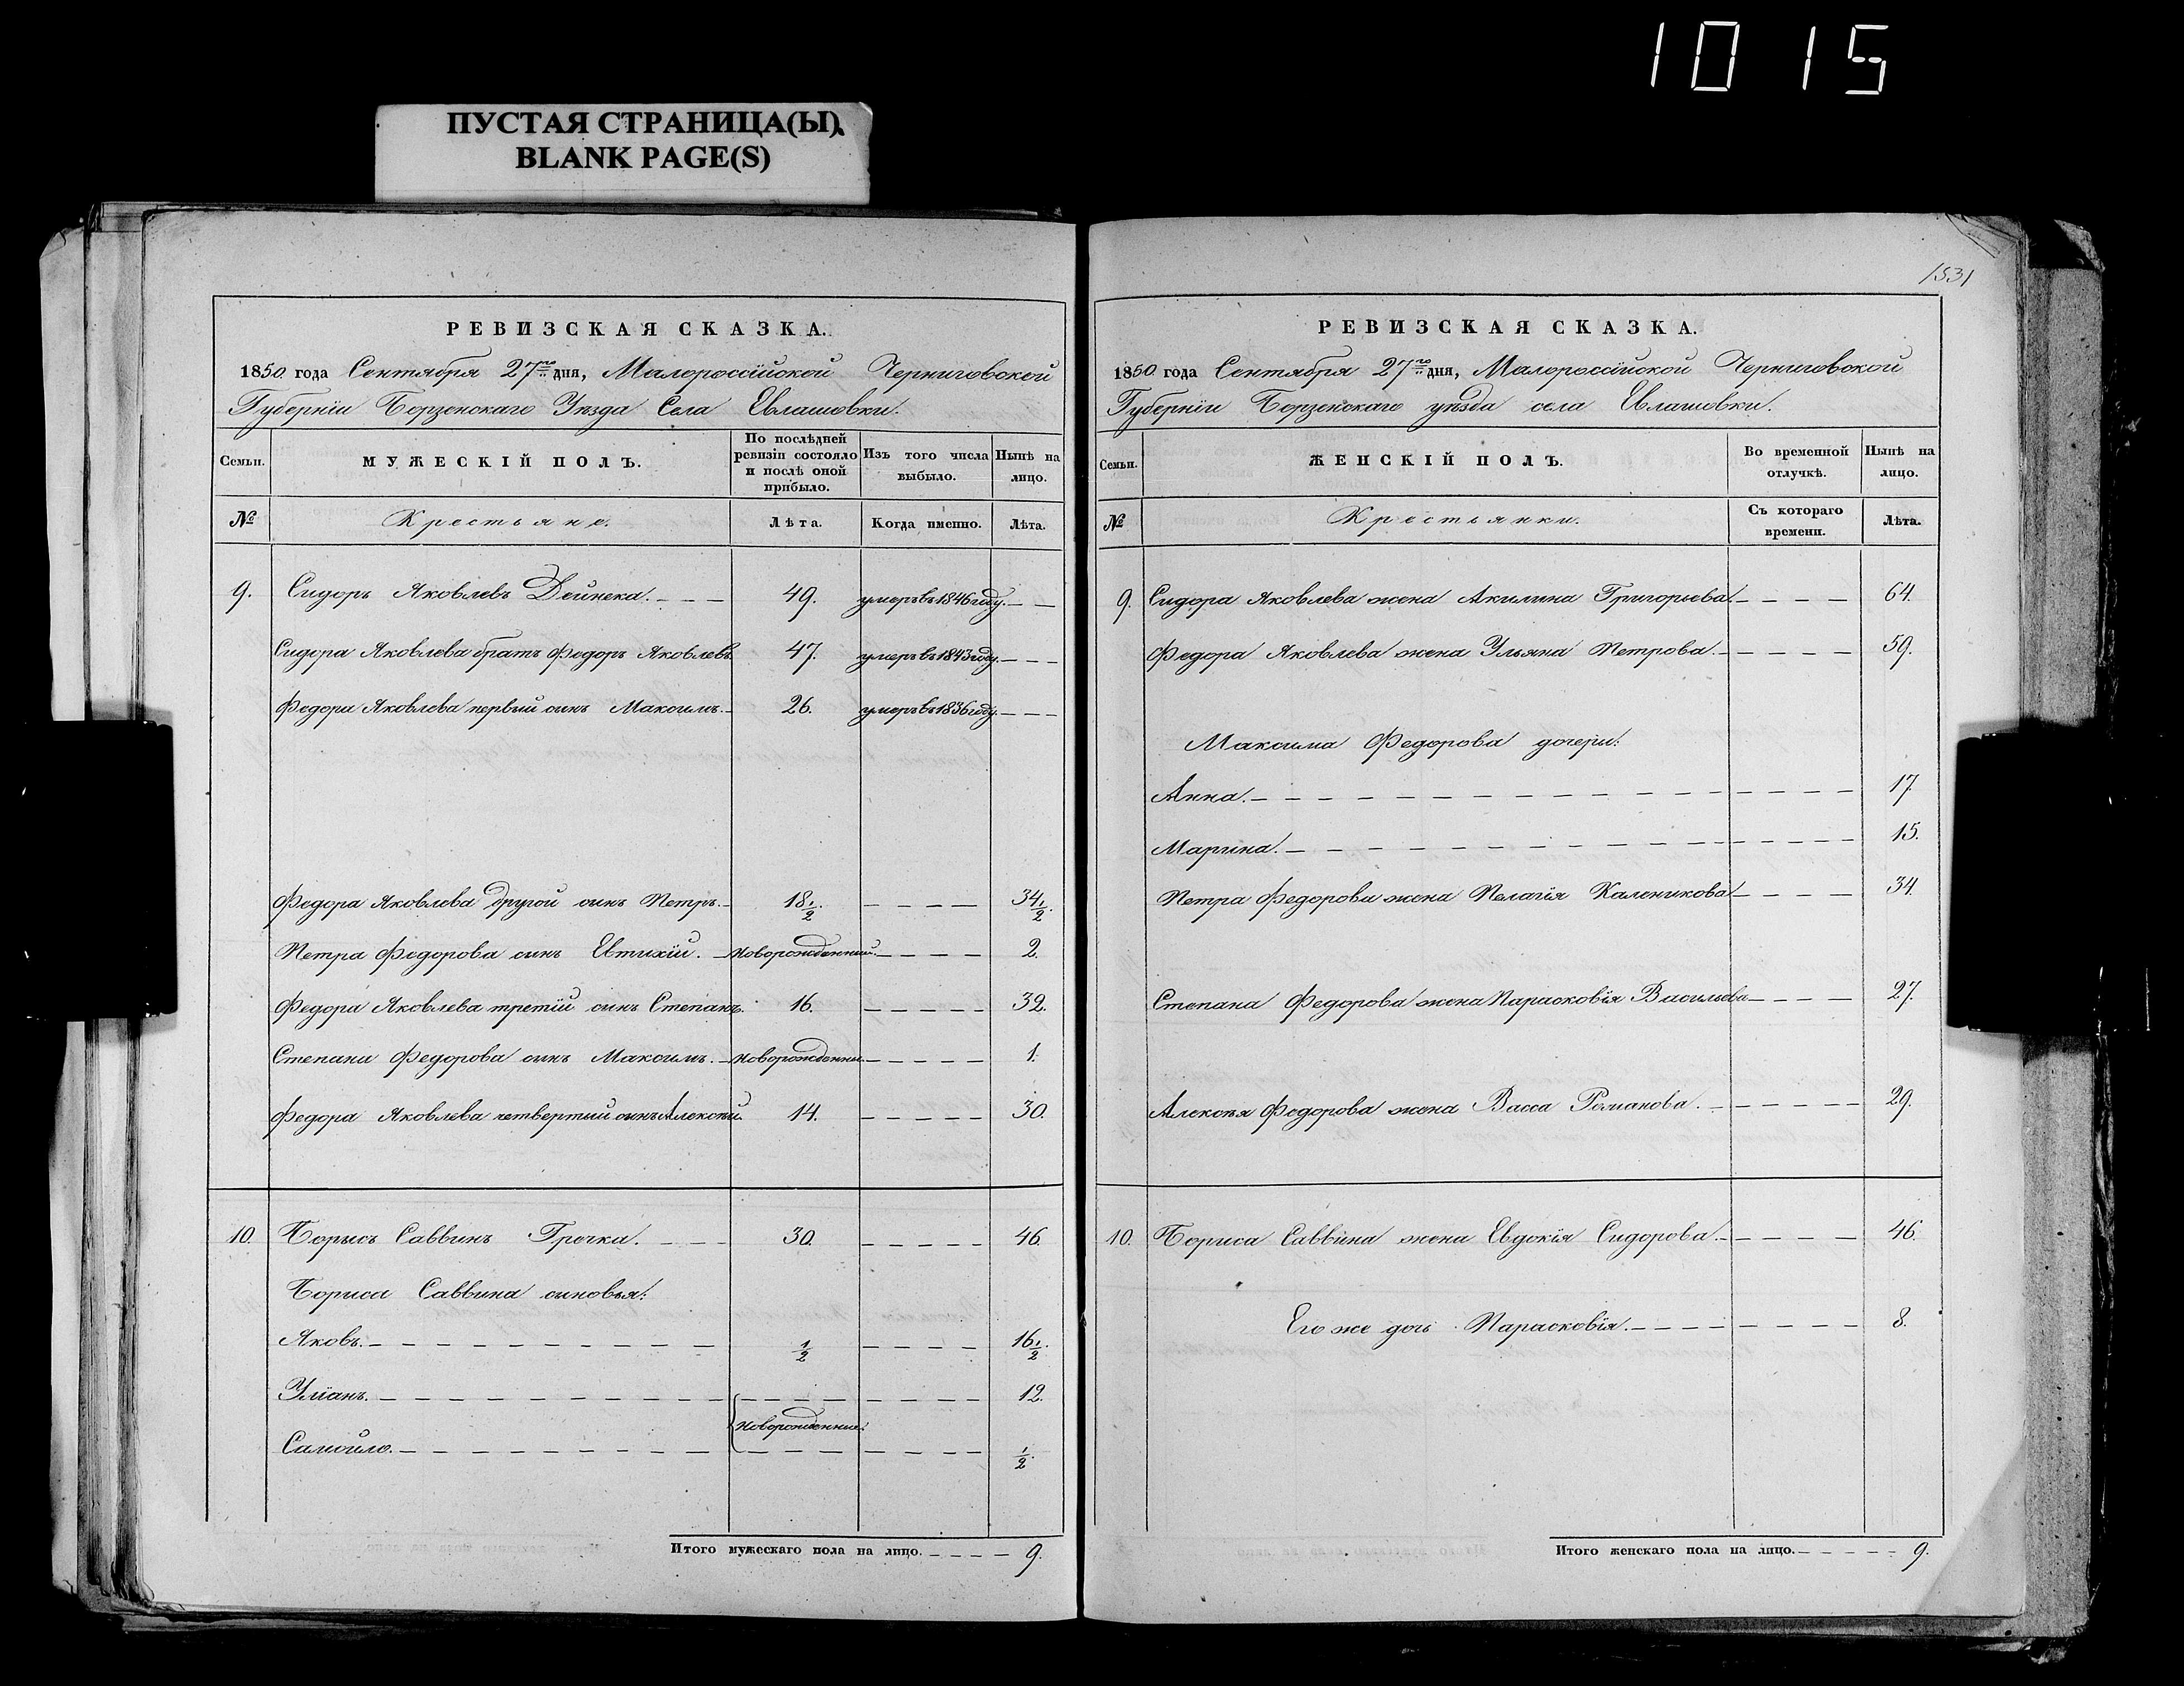 1015
ПУСТАЯ СТРАНИЦА(Ы).
BLANK PAGE(S)
РЕВИЗСКАЯ СКАЗКА.
1850 года Сентября 27го дня, Малороссійской Черниговской
Губерніи Борзенскаго Уѣзда Села Евлашовки.
Семьи. МУЖЕСКІЙ ПОЛЪ. По послѣдней ревизіи состояло и послѣ оной прибыло. Изъ того числа выбыло. Нынѣ на лицо.
№ Крестьяне. Лѣта. Когда именно. Лѣта.
9. Сидоръ Яковлевъ Дейнека. 49. умеръ въ 1846 году.
Сидора Яковлева братъ Федоръ Яковлевъ 47. умеръ въ 1843 году.
Федора Яковлева первый сынъ Максимъ. 26. умеръ въ 1836 году.
Федора Яковлева другой сынъ Петръ. 18 1/2. 34 1/2.
Петра Федорова сынъ Евтихій. новорожденный. 2.
Федора Яковлева третій сынъ Степанъ. 16. 32.
Степана Федорова сынъ Максимъ. новорожденны. 1.
Федора Яковлева четвертый сынъ Алексѣй. 14. 30.
10. Борисъ Саввинъ Гречка. 30. 46.
Бориса Саввина сыновья:
Яковъ. 1/2 16 1/2.
Уліанъ. 12.
новорожденные.
Самойло. 1/2.
Итого мужескаго пола на лицо. 9.
1531
РЕВИЗСКАЯ СКАЗКА.
1850 года Сентября 27го дня, Малороссійской Черниговской
Губерніи Борзенскаго уѣзда села Евлашовки.
Семьи. ЖЕНСКІЙ ПОЛЪ. Во временной отлучкѣ. Нынѣ на лицо.
№ Крестьянки. Съ котораго времени. Лѣта.
9. Сидора Яковлева жена Акилина Григорьева. 64.
Федора Яковлева жена Ульяна Петрова. 59.
Максима Федорова дочери:
Анна. 17.
Марина. 15.
Петра Федорова жена Пелагія Каленикова 34.
Степана Федорова жена Парасковія Васильева 27.
Алексѣя Федорова жена Васса Романова. 29.
10. Бориса Саввина жена Евдокія Сидорова. 46.
Его же дочь Парасковія. 8.
Итого женскаго пола на лицо. 9.